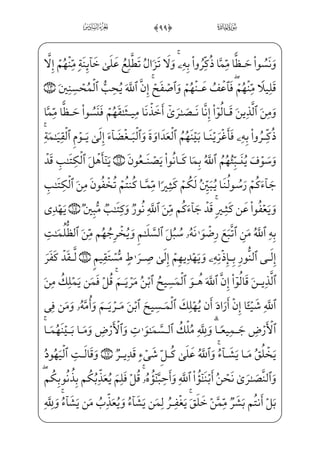 الجزء السادس ﴿٩٩﴾ سورة المائدة
وَنَسُوا۟ حَظًّا مِّمَّا ذُكِّرُوا۟ بِهِۦ ۚ وَلَا تَزَالُ تَطَّلِعُ عَلَىٰ خَآئِنَةٍ مِّنْهُمْ إِلَّا
قَلِيلًا مِّنْهُمْ ۖ فَٱعْفُ عَنْهُمْ وَٱصْفَحْ ۚ إِنَّ ٱللَّهَ يُحِبُّ ٱلْمُحْسِنِينَ ۝١٣
وَمِنَ ٱلَّذِينَ قَالُوٓا۟ إِنَّا نَصَٰرَىٰٓ أَخَذْنَا مِيثَٰقَهُمْ فَنَسُوا۟ حَظًّا مِّمَّا
ذُكِّرُوا۟ بِهِۦ فَأَغْرَيْنَا بَيْنَهُمُ ٱلْعَدَاوَةَ وَٱلْبَغْضَآءَ إِلَىٰ يَوْمِ ٱلْقِيَٰمَةِ ۚ
وَسَوْفَ يُنَبِّئُهُمُ ٱللَّهُ بِمَا كَانُوا۟ يَصْنَعُونَ ۝١٤ يَٰٓأَهْلَ ٱلْكِتَٰبِ قَدْ
جَآءَكُمْ رَسُولُنَا يُبَيِّنُ لَكُمْ كَثِيرًا مِّمَّا كُنتُمْ تُخْفُونَ مِنَ ٱلْكِتَٰبِ
وَيَعْفُوا۟ عَن كَثِيرٍ ۚ قَدْ جَآءَكُم مِّنَ ٱللَّهِ نُورٌ وَكِتَٰبٌ مُّبِينٌ ۝١٥ يَهْدِى
بِهِ ٱللَّهُ مَنِ ٱتَّبَعَ رِضْوَٰنَهُۥ سُبُلَ ٱلسَّلَٰمِ وَيُخْرِجُهُم مِّنَ ٱلظُّلُمَٰتِ
إِلَى ٱلنُّورِ بِإِذْنِهِۦ وَيَهْدِيهِمْ إِلَىٰ صِرَٰطٍ مُّسْتَقِيمٍ ۝١٦ لَّقَدْ كَفَرَ
ٱلَّذِينَ قَالُوٓا۟ إِنَّ ٱللَّهَ هُوَ ٱلْمَسِيحُ ٱبْنُ مَرْيَمَ ۚ قُلْ فَمَن يَمْلِكُ مِنَ
ٱللَّهِ شَيْـًٔا إِنْ أَرَادَ أَن يُهْلِكَ ٱلْمَسِيحَ ٱبْنَ مَرْيَمَ وَأُمَّهُۥ وَمَن فِى
ٱلْأَرْضِ جَمِيعًا ۗ وَلِلَّهِ مُلْكُ ٱلسَّمَٰوَٰتِ وَٱلْأَرْضِ وَمَا بَيْنَهُمَا ۚ
يَخْلُقُ مَا يَشَآءُ ۚ وَٱللَّهُ عَلَىٰ كُلِّ شَىْءٍ قَدِيرٌ ۝١٧ وَقَالَتِ ٱلْيَهُودُ
وَٱلنَّصَٰرَىٰ نَحْنُ أَبْنَٰٓؤُا۟ ٱللَّهِ وَأَحِبَّٰٓؤُهُۥ ۚ قُلْ فَلِمَ يُعَذِّبُكُم بِذُنُوبِكُم ۖ
بَلْ أَنتُم بَشَرٌ مِّمَّنْ خَلَقَ ۚ يَغْفِرُ لِمَن يَشَآءُ وَيُعَذِّبُ مَن يَشَآءُ ۚ وَلِلَّهِ